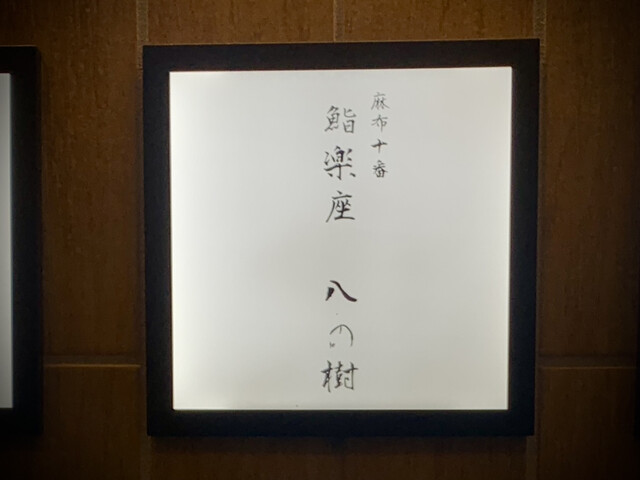 麻布十番
鮨楽座 八の樹